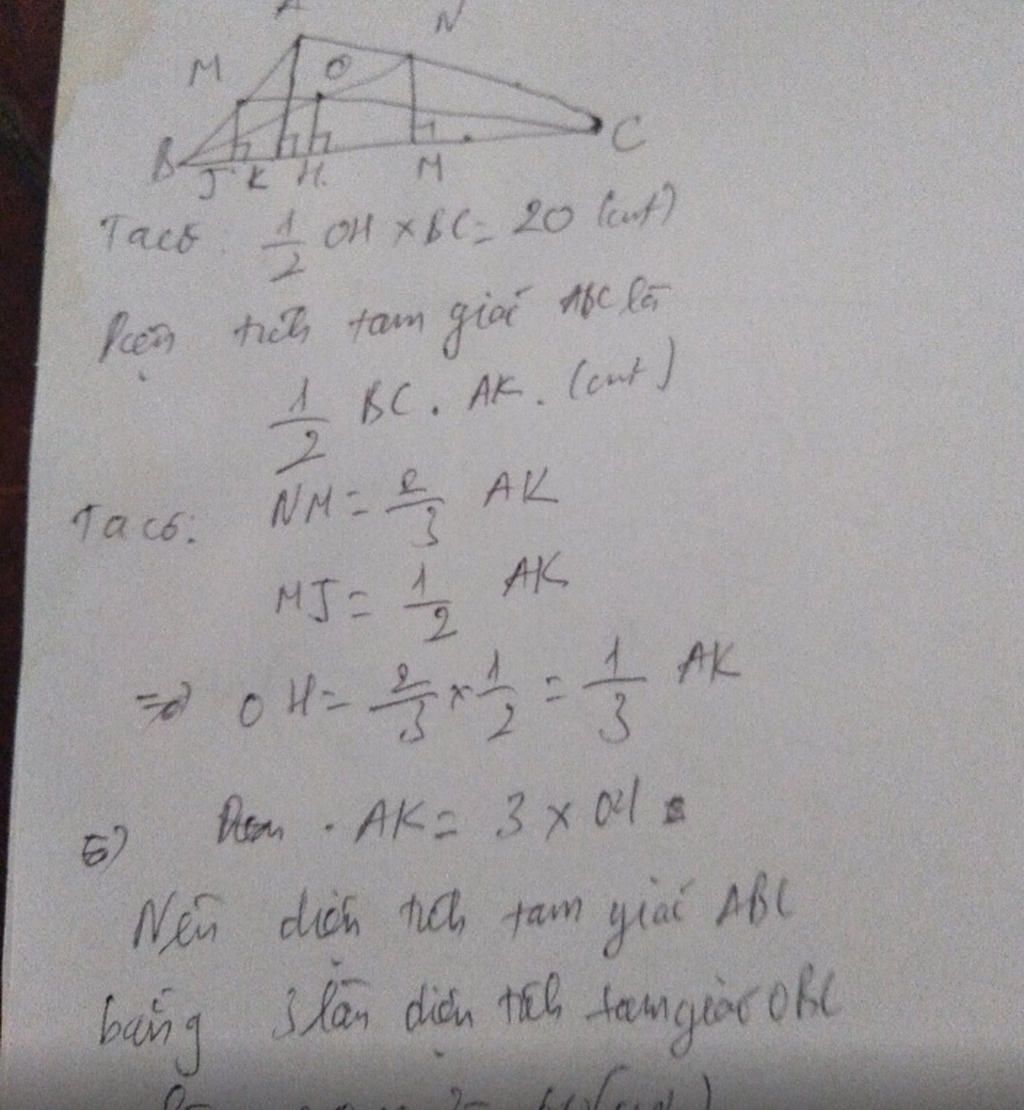 A
N
M
O
B
J K H M
C
Ta có: 1/2 OH × BC = 20 (cm²)
Diện tích tam giác ABC là
1/2 BC . AK . (cm²)
Ta có: NM = 2/3 AK
MJ = 1/2 AK
=> OH = 2/3 × 1/2 = 1/3 AK
AK = 3 × OH
Nên diện tích tam giác ABC
bằng 3 lần diện tích tam giác OBC